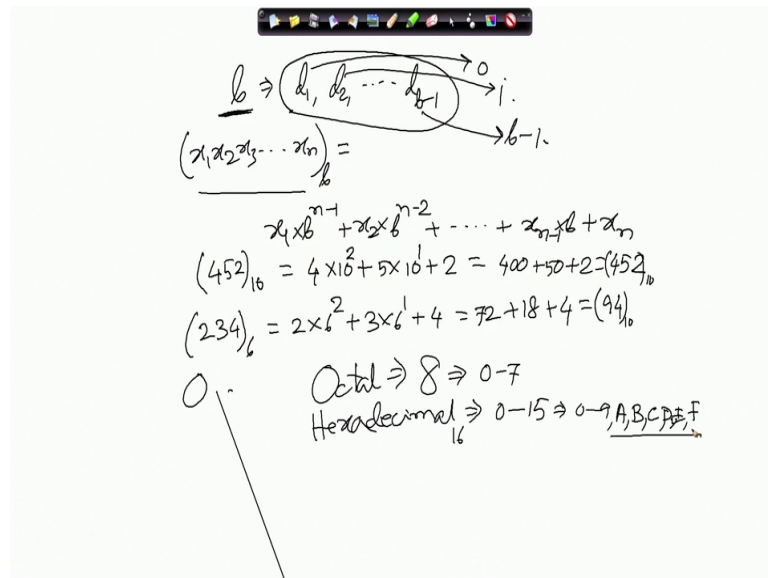 b ⇒ d₁, d₂, ---- d_{b-1} → 0
→ 1.
→ b-1.
(x₁x₂x₃---xₙ)_b =
x₁×b^{n-1} + x₂×b^{n-2} + ---- + x_{n-1}×b + xₙ
(452)₁₀ = 4×10² + 5×10¹ + 2 = 400+50+2 = (452)₁₀
(234)₆ = 2×6² + 3×6¹ + 4 = 72+18+4 = (94)₁₀
Octal ⇒ 8 ⇒ 0-7
Hexadecimal₁₆ ⇒ 0-15 ⇒ 0-9, A, B, C, D, E, F